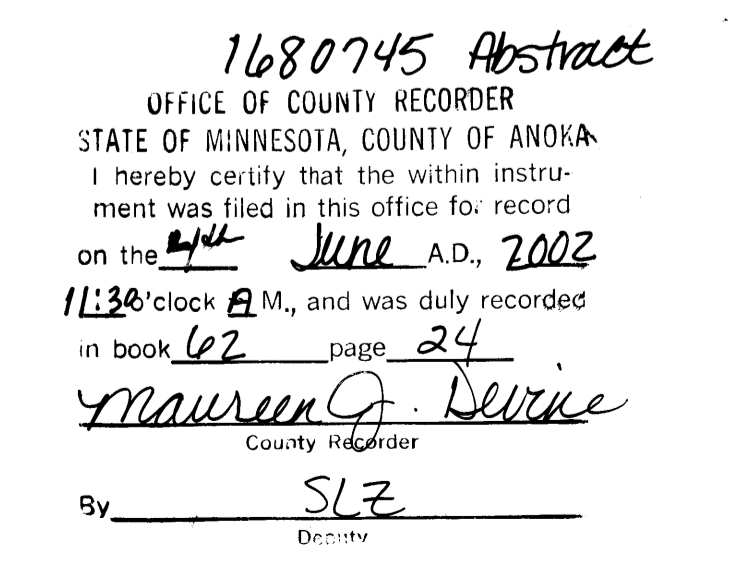 1680745 Abstract
OFFICE OF COUNTY RECORDER
STATE OF MINNESOTA, COUNTY OF ANOKA
I hereby certify that the within instru-
ment was filed in this office for record
on the June A.D., 2002
11:30 o'clock A M., and was duly recorded
in book 62 page 24
Maureen J. Devine
County Recorder
By SLZ
Deputy